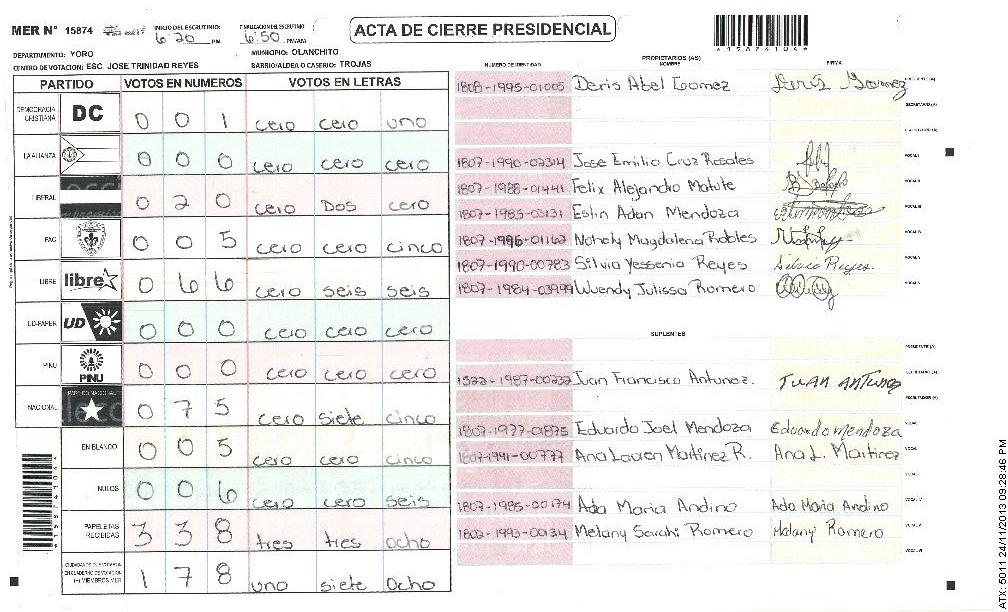 MER N° 15874 INICIO DEL ESCRUTINIO: 6:20 PM FINALIZACION DEL ESCRUTINIO 6:50 PM/AM
ACTA DE CIERRE PRESIDENCIAL
DEPARTAMENTO: YORO MUNICIPIO: OLANCHITO
CENTRO DE VOTACION: ESC. JOSE TRINIDAD REYES BARRIO/ALDEA O CASERIO: TROJAS
PARTIDO VOTOS EN NUMEROS VOTOS EN LETRAS
DEMOCRACIA CRISTIANA DC 0 0 1 cero cero uno
LA ALIANZA 0 0 0 cero cero cero
LIBERAL 0 2 0 cero Dos cero
PAC 0 0 5 cero cero cinco
LIBRE libre 0 6 6 cero seis seis
UD-FAPER UD 0 0 0 cero cero cero
PINU PINU 0 0 0 cero cero cero
NACIONAL PARTIDO NACIONAL 0 7 5 cero siete cinco
EN BLANCO 0 0 5 cero cero cinco
NULOS 0 0 6 cero cero seis
PAPELETAS RECIBIDAS 3 3 8 tres tres ocho
(+) MIEMBROS MER 1 7 8 uno siete Ocho
PROPIETARIOS (AS)
NUMERO DE IDENTIDAD NOMBRE FIRMA
1808-1995-01005 Deris Abel Gomez
1807-1990-02314 Jose Emilio Cruz Rosales
1807-1988-01441 Felix Alejandro Matute
1807-1985-03131 Eslin Adan Mendoza
1807-1996-01162 Nathaly Magdalena Robles
1807-1990-00783 Silvia Yessenia Reyes Silvia Reyes.
1807-1984-03999 Wuendy Julissa Romero
SUPLENTES
1522-1987-00232 Juan Francisco Antunez. JUAN ANTUNEZ
1807-1977-01875 Eduardo Joel Mendoza Eduardo Mendoza
1807-1991-00777 Ana Lauren Martinez R. Ana L. Martinez
1807-1985-00174 Ada Maria Andino Ada Maria Andino
1802-1993-00134 Melany Sarahi Romero Melany Romero
ATX: 5011 24/11/2013 09:28:46 PM